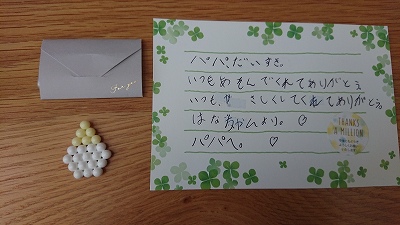 パパ、だいすき。
いつもあそんでくれてありがとう
いつも、 さしくしてくれてありがとう。
はなちゃんより。♡
パパへ。 ♡
THANKS
A MILLION